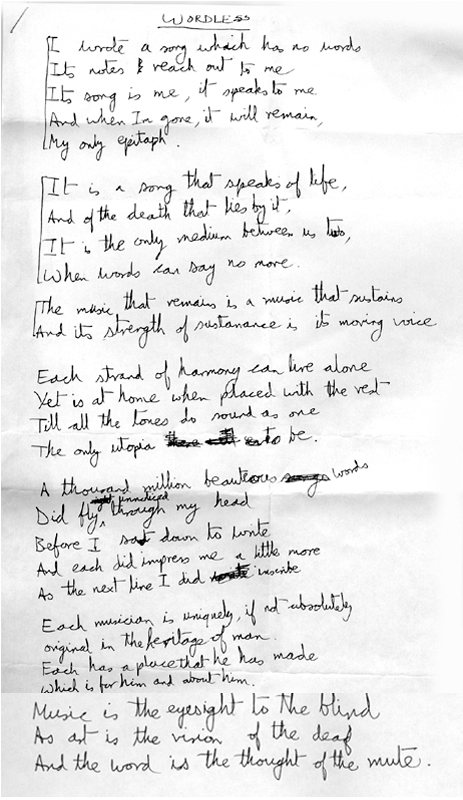 WORDLESS
I wrote a song which has no words
Its notes & reach out to me
Its song is me, it speaks to me
And when Im gone, it will remain,
My only epitaph.
It is a song that speaks of life,
And of the death that lies by it,
It is the only medium between us
When words can say no more.
The music that remains is a music that sustains
And its strength of sustanance is its moving voice
Each strand of harmony can live alone
Yet is at home when placed with the rest
Till all the tones do sound as one
The only utopia to be.
A thousand million beauteous words
Did fly unnoticed through my head
Before I sat down to write
And each did impress me a little more
As the next line I did inscribe
Each musician is uniquely, if not absolutely
original in the heritage of man.
Each has a place that he has made
which is for him and about him.
Music is the eyesight to the blind
As art is the vision of the deaf
And the word is the thought of the mute.